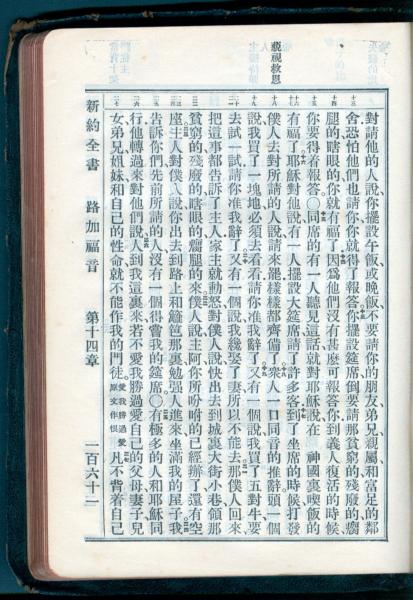 藐視救恩
對請他的人說、你擺設午飯或晚飯、不要請你的朋友、弟兄、親屬和富足的鄰
舍、恐怕他們也請你、你就得了報答、你擺設筵席、倒要請那貧窮的、殘廢的、瘸
腿的、瞎眼的、你就有福了、因爲他們沒有甚麽可報答你、到義人復活的時候
你要得着報答○同席的有一人聽見這話、就對耶穌說、在　神國裏喫飯的
有福了、耶穌對他說、有一人擺設大筵席、請了許多客、到了坐席的時候、打發
僕人去對所請的人說、請來罷、樣樣都齊備了、衆人一口同音的推辭、頭一個
說、我買了一塊地、必須去看看、請你准我辭了、又有一個說、我買了五對牛、要
去試一試、請你准我辭了、又有一個說、我纔娶了妻、所以不能去、那僕人回來
把這事都告訴了主人、家主就動怒、對僕人說、快出去到城裏大街小巷、領那
貧窮的、殘廢的、瞎眼的、瘸腿的來、僕人說、主阿、你所吩咐的已經辦了、還有空
座、主人對僕人說、你出去到路上和籬笆那裏、勉强人進來、坐滿我的屋子、我
告訴你們、先前所請的人、沒有一個得嘗我的筵席○有極多的人和耶穌同
行、他轉過來對他們說、人到我這裏來、若不愛我勝過愛自己的父母、妻子、兒
女、弟兄、姐妹和自己的性命、就不能作我的門徒、愛我勝過愛原文作恨凡不背着自己
新約全書　路加福音　第十四章　一百六十二